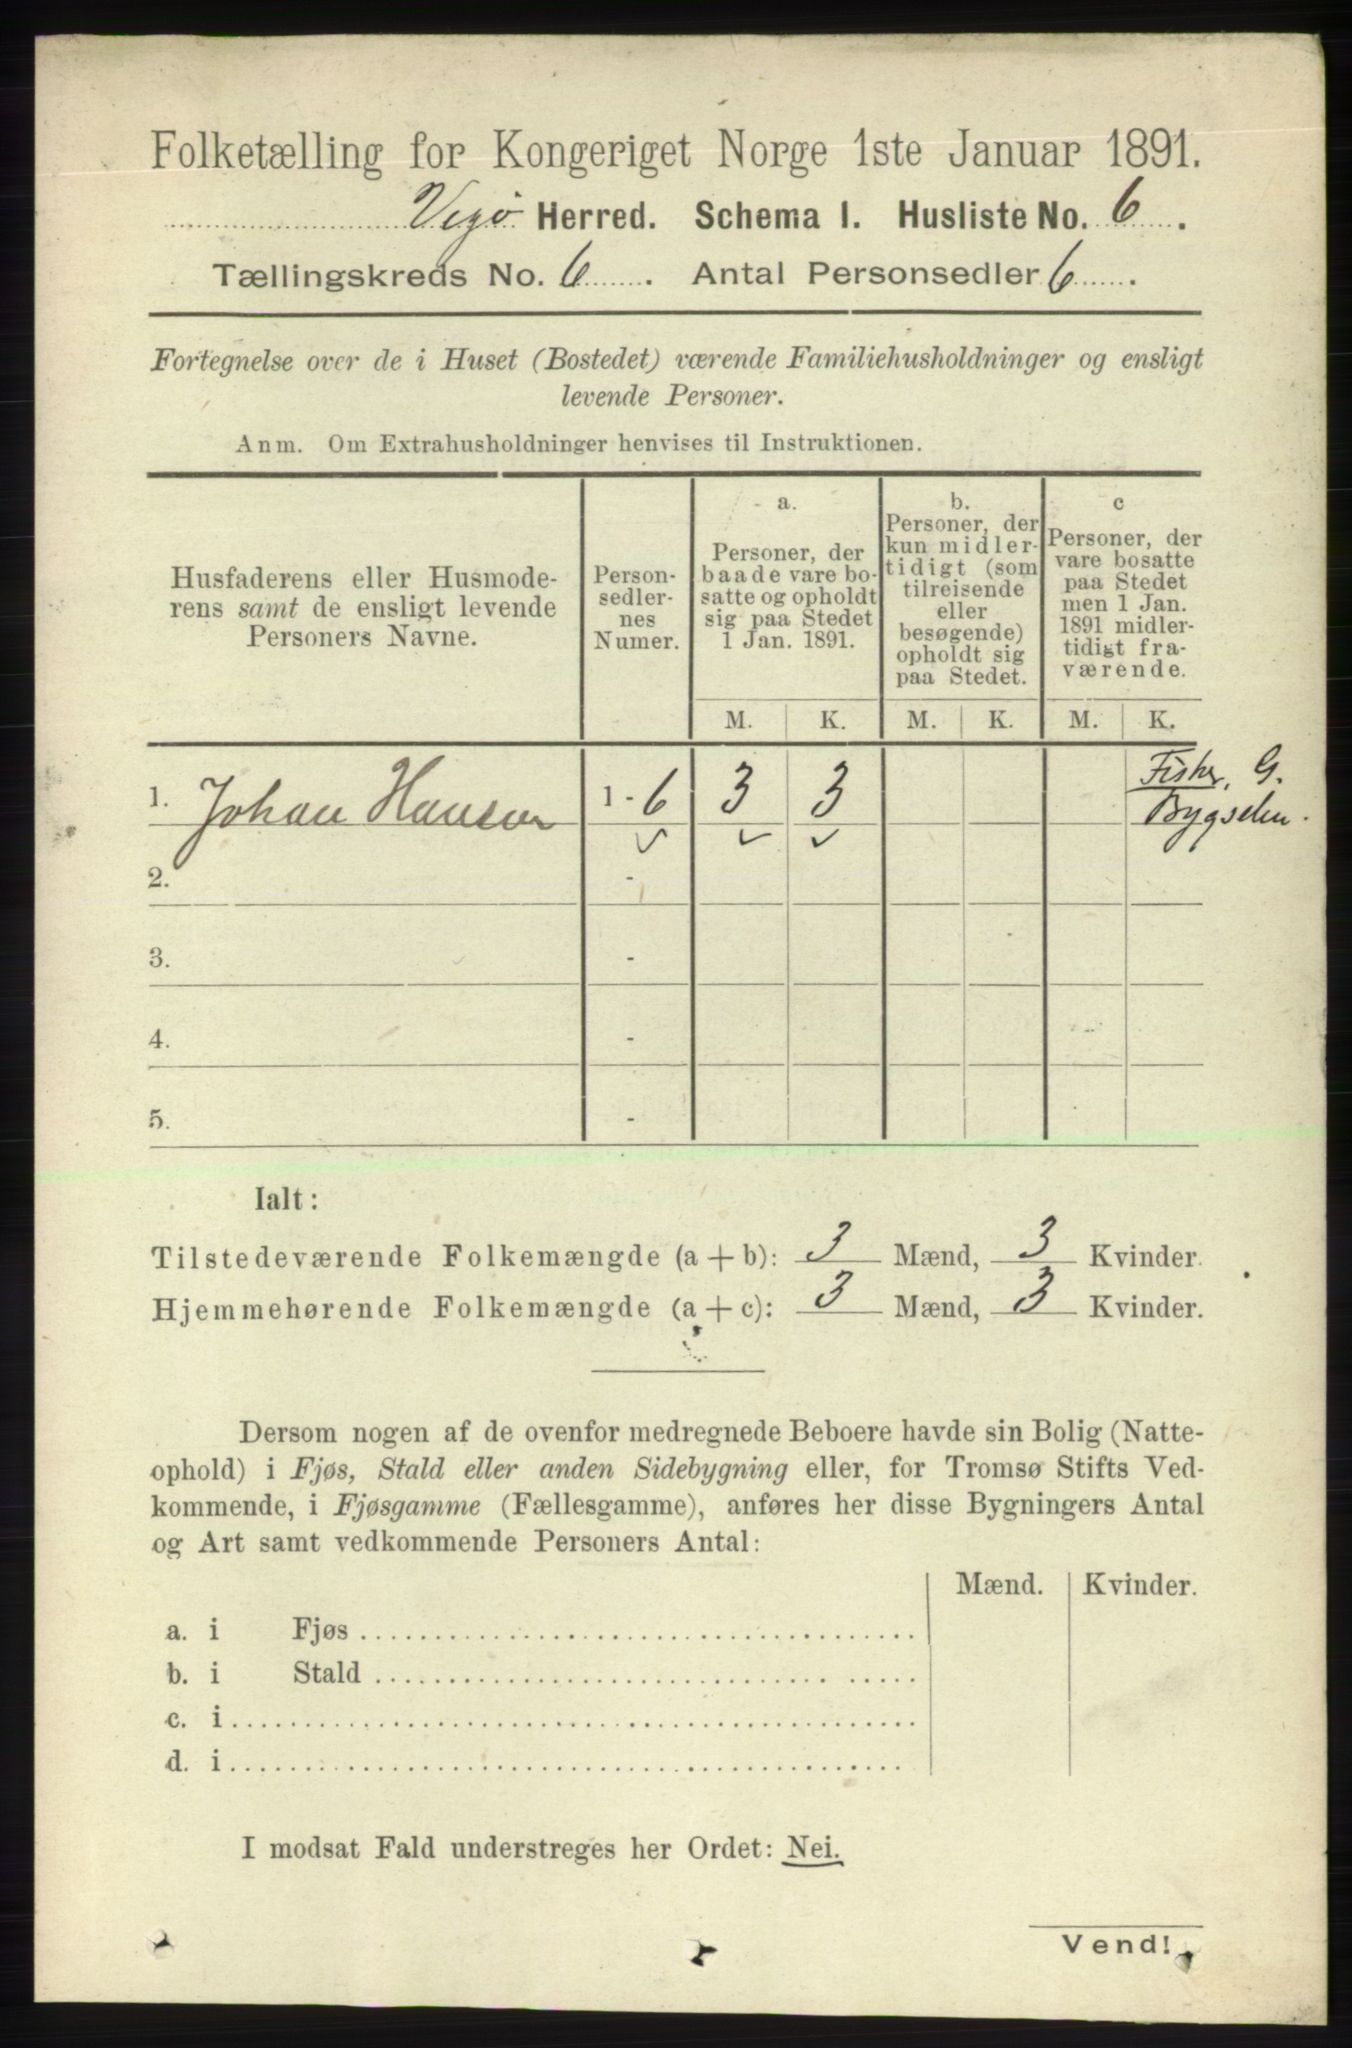 Folketælling for Kongeriget Norge 1ste Januar 1891.
Vegø Herred. Schema I. Husliste No. 6.
Tællingskreds No. 6. Antal Personsedler 6.
Fortegnelse over de i Huset (Bostedet) værende Familiehusholdninger og ensligt
levende Personer.
Anm. Om Extrahusholdninger henvises til Instruktionen.
Husfaderens eller Husmode-
rens samt de ensligt levende
Personers Navne.
Person-
sedler-
nes
Numer.
a.
Personer, der
baade vare bo-
satte og opholdt
sig paa Stedet
1 Jan. 1891.
b.
Personer, der
kun midler-
tidigt (som
tilreisende
eller
besøgende)
opholdt sig
paa Stedet.
c
Personer, der
vare bosatte
paa Stedet
men 1 Jan.
1891 midler-
tidigt fra-
værende.
M. K. M. K. M. K.
Fisker, G.
1. Johan Hansen 1 - 6 3 3 Bygselm.
2. -
3. -
4. -
5. -
Ialt:
Tilstedeværende Folkemængde (a + b): 3 Mænd, 3 Kvinder.
Hjemmehørende Folkemængde (a + c): 3 Mænd, 3 Kvinder.
Dersom nogen af de ovenfor medregnede Beboere havde sin Bolig (Natte-
ophold) i Fjøs, Stald eller anden Sidebygning eller, for Tromsø Stifts Ved-
kommende, i Fjøsgamme (Fællesgamme), anføres her disse Bygningers Antal
og Art samt vedkommende Personers Antal:
Mænd. Kvinder.
a. i Fjøs
b. i Stald
c. i
d. i
I modsat Fald understreges her Ordet: Nei.
Vend!